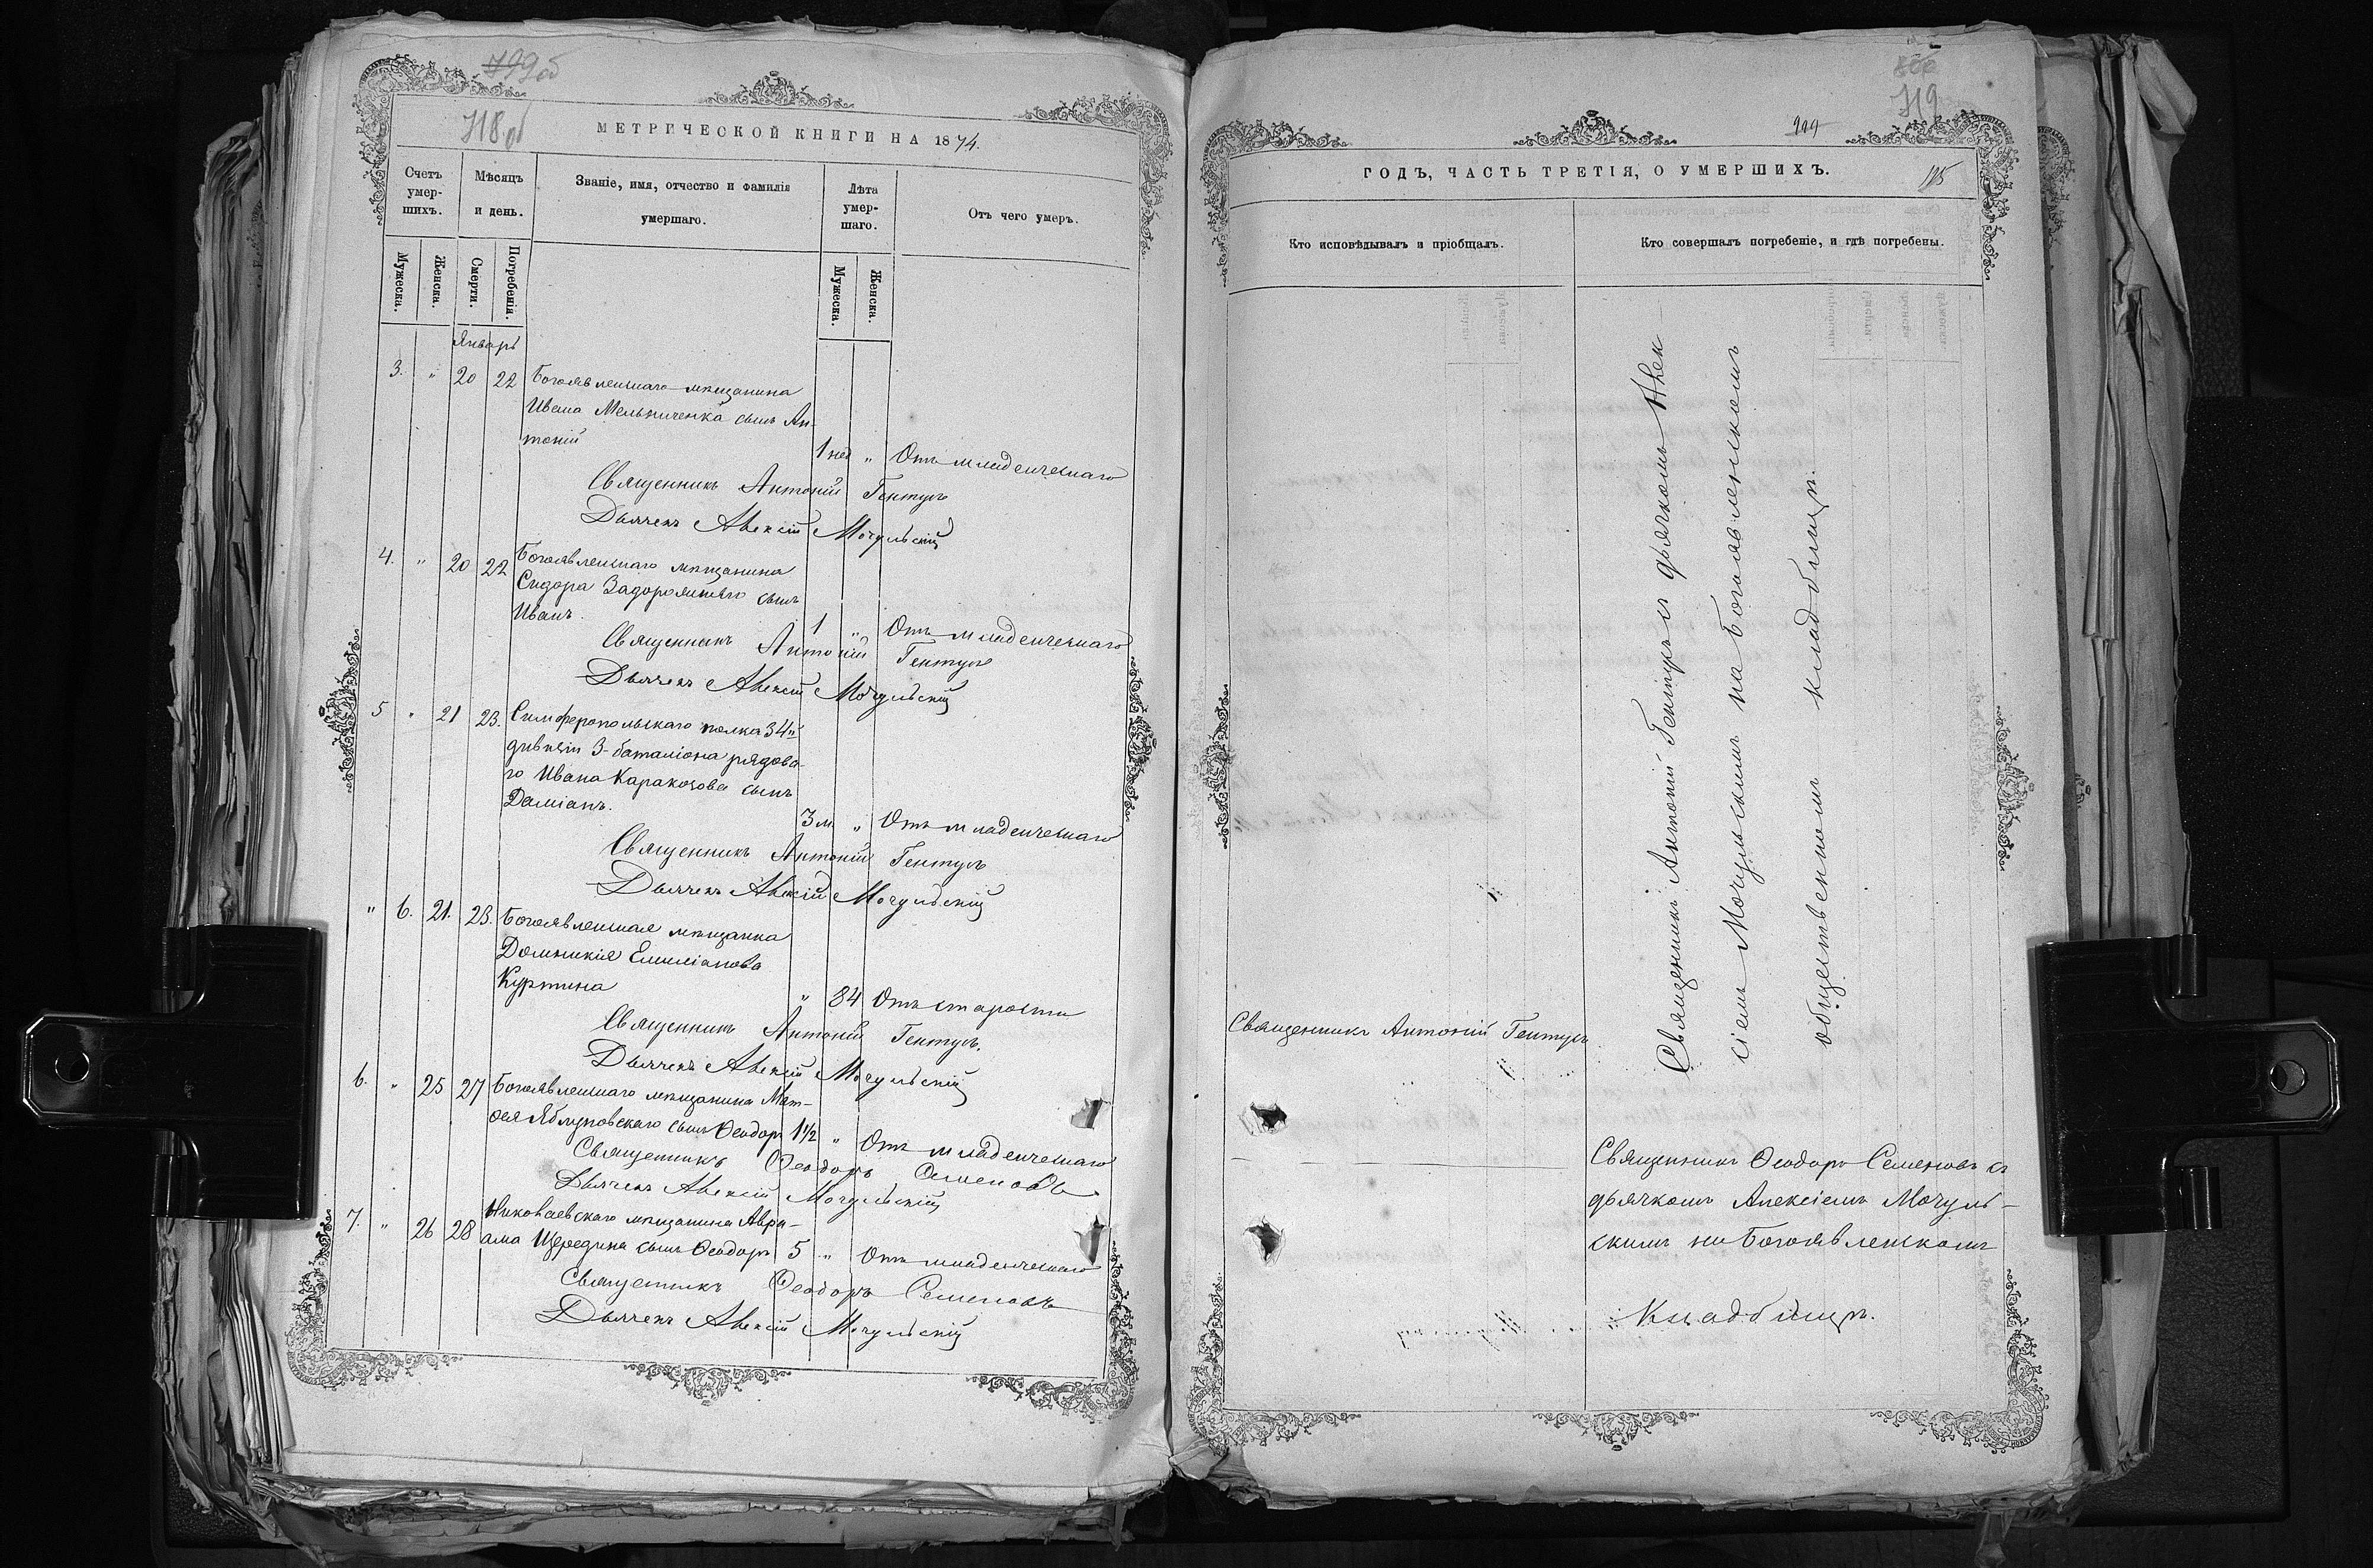 718 об
МЕТРИЧЕСКОЙ КНИГИ НА 1874.
Счетъ умер-шихъ.
Мѣсяцъ и день.
Званіе, имя, отчество и фамилія умершаго.
Лѣта умер-шаго.
Отъ чего умеръ.
Мужеска.
Женска.
Смерти.
Погребенія.
Мужеска.
Женска.
Январь
3. " 20 22 Богоявленскаго мѣщанина
Ивана Мельниченка сынъ Ан-
тоній
1 нед " Отъ младенческаго
Священникъ Антоній Гентуръ
Дьячекъ Алексій Мочульскій
4. " 20 22 Богоявленскаго мѣщанина
Сидора Задорожнаго сынъ
Иванъ.
1 " Отъ младенческаго
Священникъ Антоній Гентуръ
Дьячекъ Алексій Мочульскій
5 " 21 23. Симферопольскаго полка 34й
дивизіи 3-баталіона рядова-
го Ивана Каракозова сынъ
Даміанъ.
3 м. " Отъ младенческаго
Священникъ Антоній Гентуръ
Дьячекъ Алексій Мочульскій
" 6. 21. 23. Богоявленская мѣщанка
Домникія Емиліанова
Куртина
" 84 Отъ старости
Священникъ Антоній Гентуръ.
Дьячекъ Алексій Мочульскій
6. " 25 27 Богоявленскаго мѣщанина Мат-
ѳея Яблуновскаго сынъ Ѳеодоръ 1½ " Отъ младенческаго
Священникъ Ѳеодоръ Семеновъ
Дьячекъ Алексій Мочульскій
7. " 26 28 Николаевскаго мѣщанина Авра-
ама Щередина сынъ Ѳеодоръ 5 " Отъ младенческаго
Священникъ Ѳеодоръ Семеновъ
Дьячекъ Алексій Мочульскій
719
ГОДЪ, ЧАСТЬ ТРЕТІЯ, О УМЕРШИХЪ.
Кто исповѣдывалъ и пріобщалъ.
Кто совершалъ погребеніе, и гдѣ погребены.
Священникъ Антоній Гентуръ съ дьячкомъ Алек-
сіемъ Мочульскимъ на Богоявленскомъ
общественномъ кладбищѣ.
Священникъ Антоній Гентуръ
Священникъ Ѳеодоръ Семеновъ съ
дьячкомъ Алексіемъ Мочуль-
скимъ на Богоявленскомъ
Кладбищѣ.